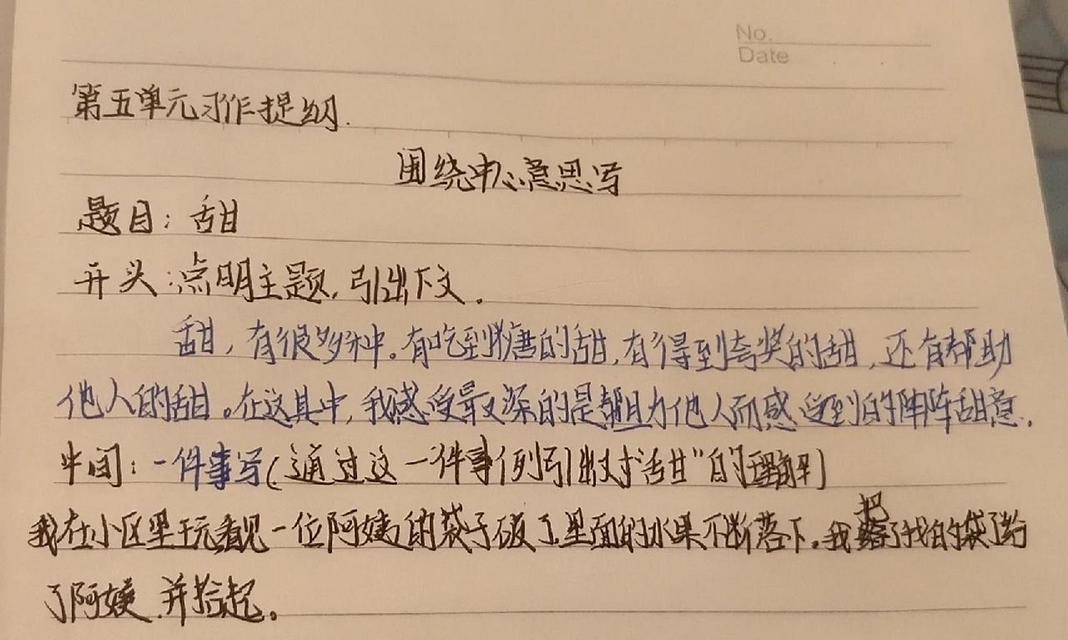 No.
Date
第五单元习作提纲.
围绕中心意思写
题目：甜
开头：点明主题，引出下文。
甜，有很多种。有吃到糖的甜，有得到夸奖的甜，还有帮助
他人的甜。在这其中，我感受最深的是帮助他人而感受到的阵阵甜意。
中间：一件事写(通过这一件事例引出对"甜"的理解)
我在小区里玩看见一位阿姨的袋子破了里面的水果不断落下。我把了我的袋子给
了阿姨，并拾起。